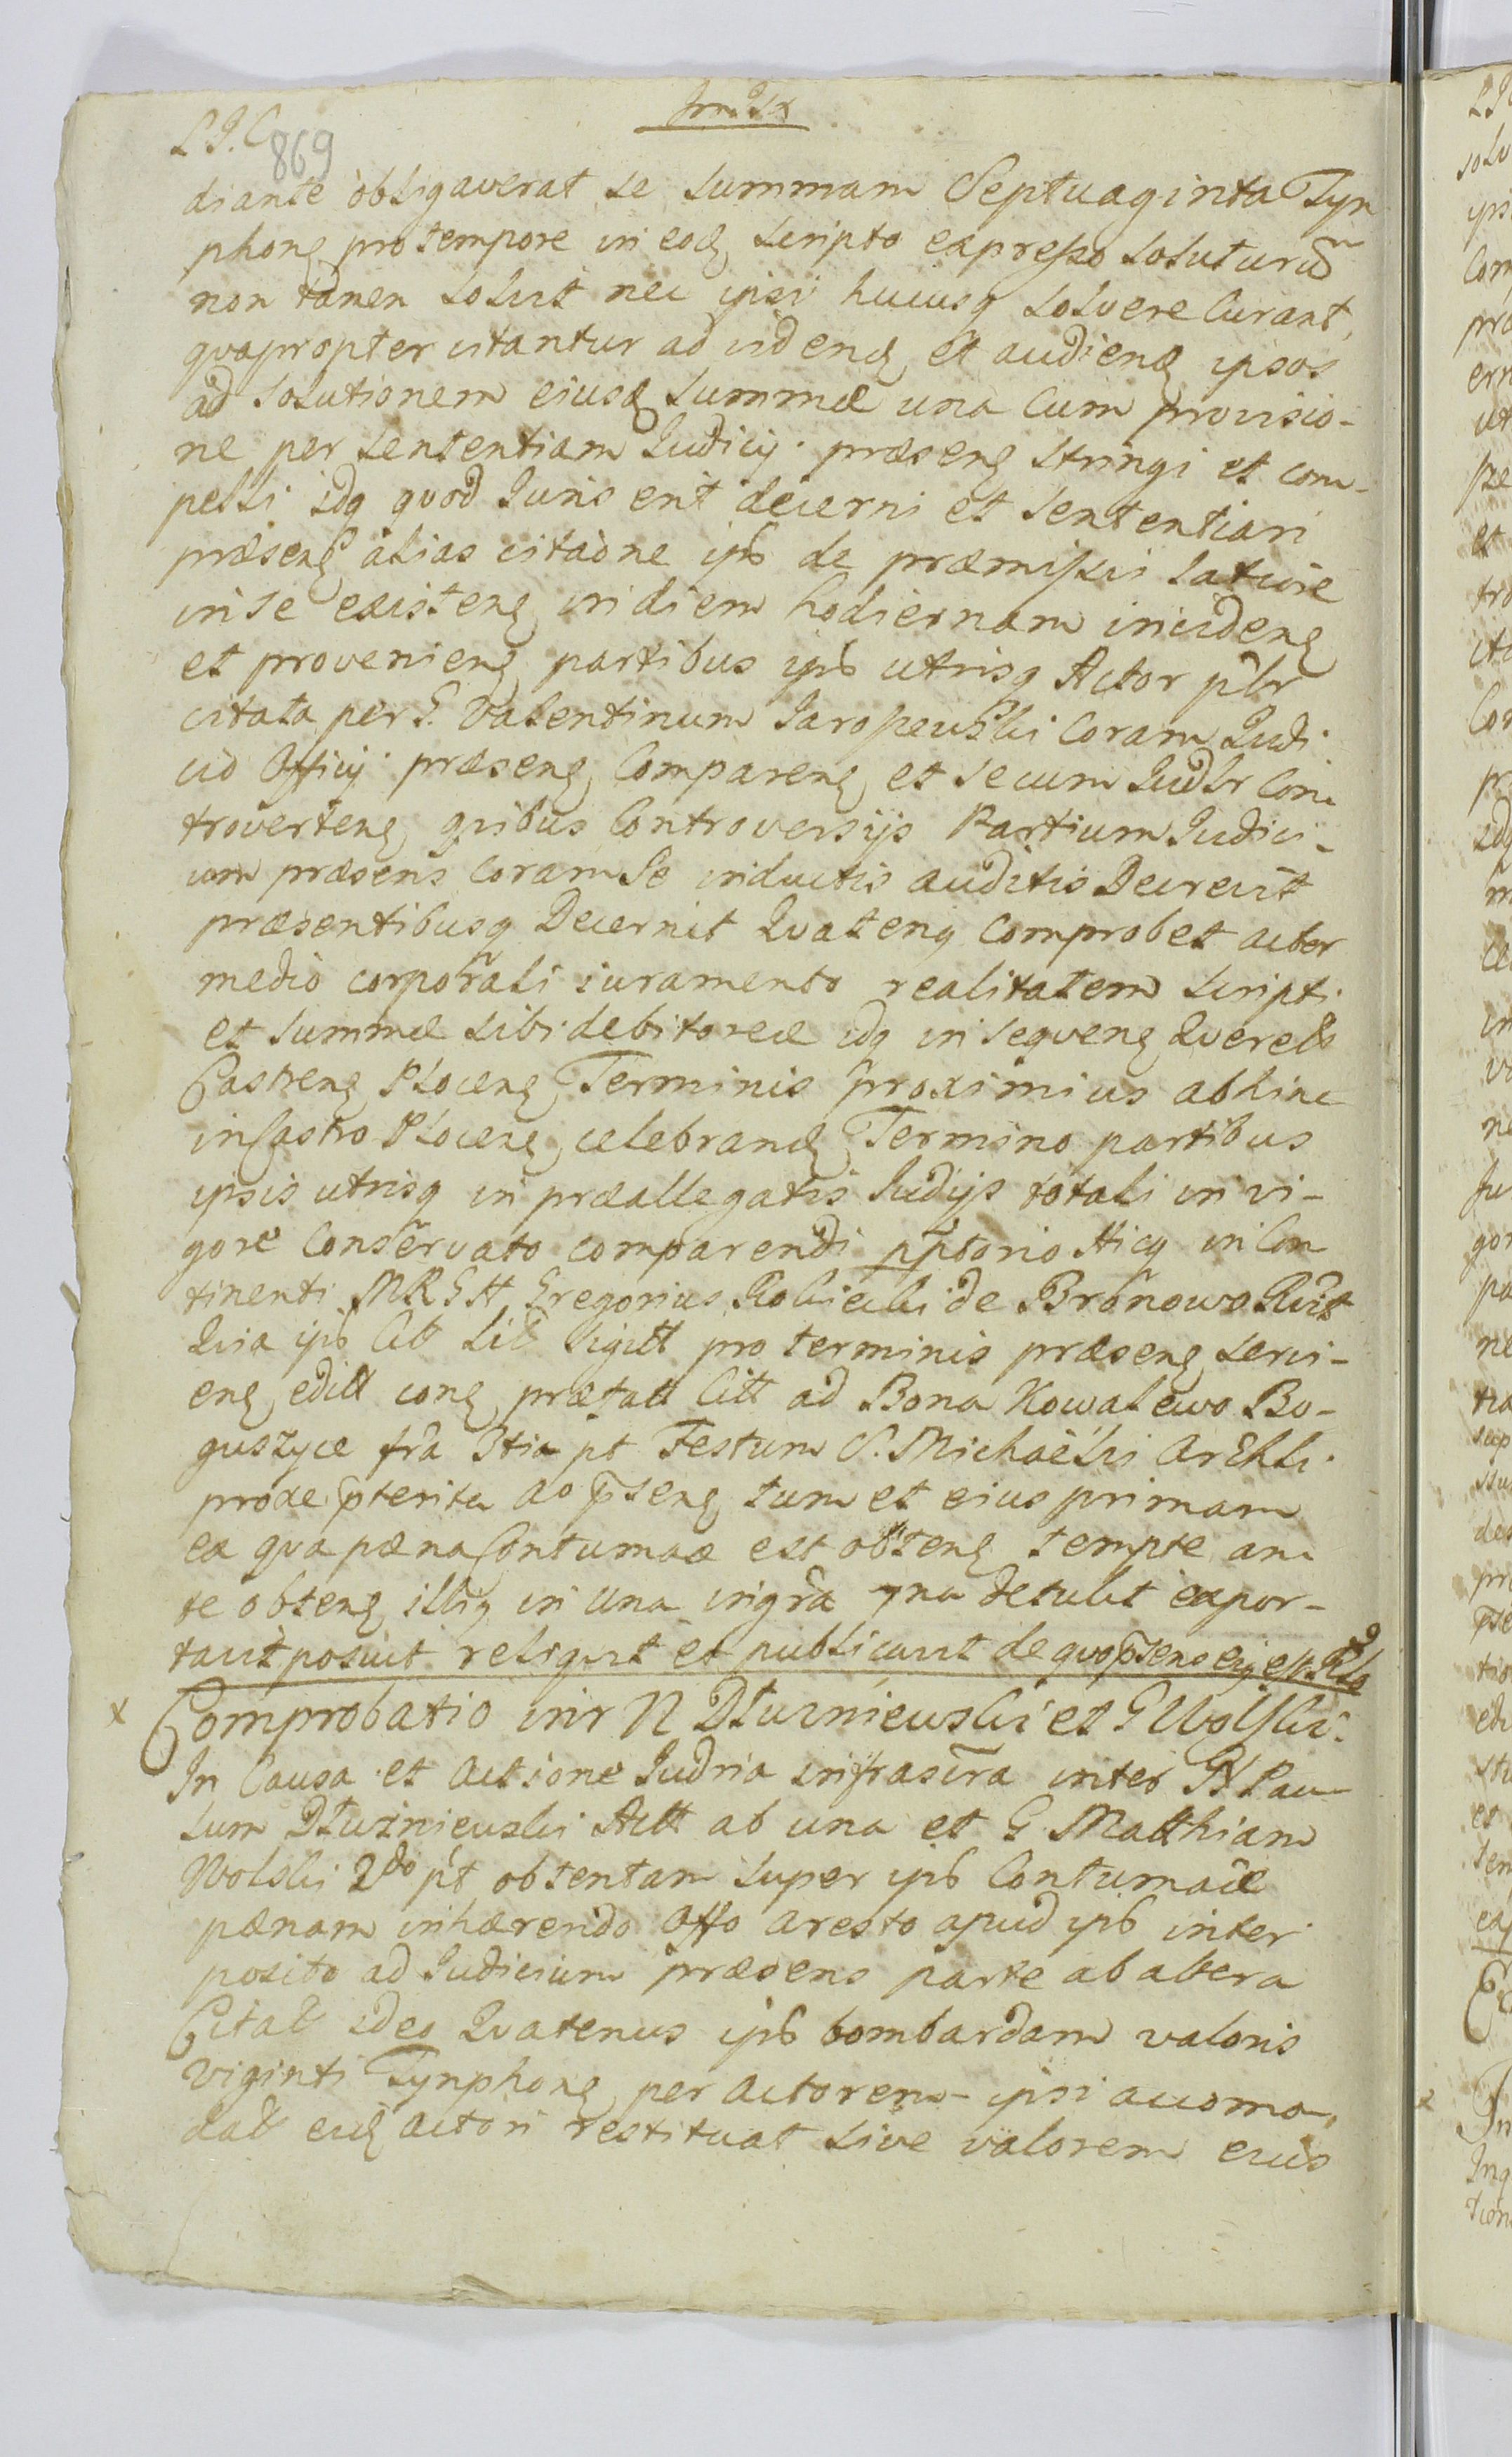 L J. C
869
diante obligaverat se summam Septuaginta Tyn
phonę pro tempore in eodę scripto expresso soluturū
non tamen soluit nec ipsi hucusq solvere Curant,
qvapropter citantur ad videndę et audiendę ipsos
ad solutionem eiusdę summæ una Cum provisio-
ne per sententiam Judicij præsenę stringi et com-
pelli idq qvod Juris erit decerni et sententiari
præsenę alias citaone ips de præmissis latius
in se existenę in diem hodiernam incidenę
et provenienę partibus ips utrisq Actor plr
citata per G. Valentinum Jaropewski Coram Judi
cio Officij præsenę Comparenę et secum Judlr Con
trovertenę qribus Controversijs Partium Judici-
um præsens Coram Se inductis auditis Decrevit
præsentibusq Decernit Qvatenq comprobet actor
medio corporali iuramento realitatem scripti
et summæ sibi debitoreæ idq in seqvenę Querels
Castrenę Płocenę Terminis proximius abhinc
in Castro Płocenę celebrandę Termino partibus
ipsis utrisq in præallegatis Judijs totali in vi-
gore Conservato comparendi pptorio Hicq in Con
tinenti MRGH Gregorius Robiecki de Bronowo Rcit
Qvia ips Citt Lit Sigill pro terminis præsenę servi-
enę edict conę præfatt Citt ad Bona Kowalewo Bo-
guszyce fra 3tia pt Festum S. Michaëlis Archli
proxe pterita ao psenę tum et eius primam
ex qva pæna Contumaæ est obtenę tempre an-
te obtenę illiq in una ingra detulit expor-
tavit posuit reliqvit et publicavit de qvo psens eiq est Rlo
x Comprobatio intr N Dłużniewski et G Wolski.
In Causa et Actione Judria infrascra inter GN Pau
lum Dłużniewski Actt ab una et G Matthiam
Wolski 2do pt obtentam super ips Contumaciæ
pænam inhærendo Offo aresto apud ips inter
posito ad Judicium præsens parte ab altera
Citat ideo Qvatenus ips bombardam valoris
viginti Tynphonę per actorem ipsi accomo,
dat eidę actori restituat sive valorem eius